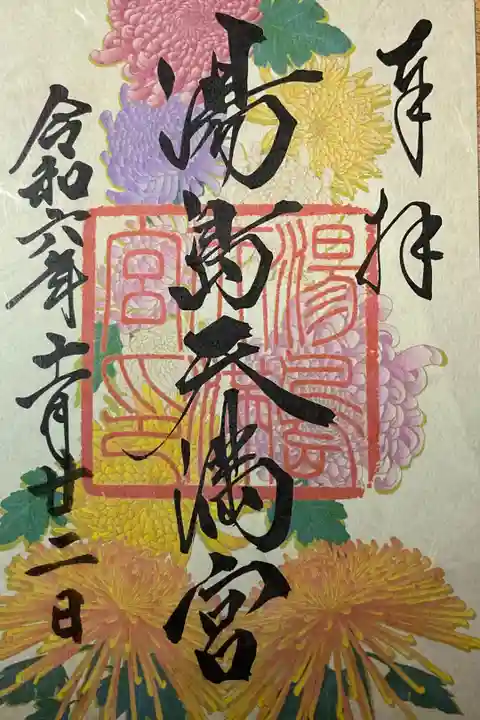 奉拝
湯島天満宮
令和六年十一月廿二日
湯島
天満
宮之印